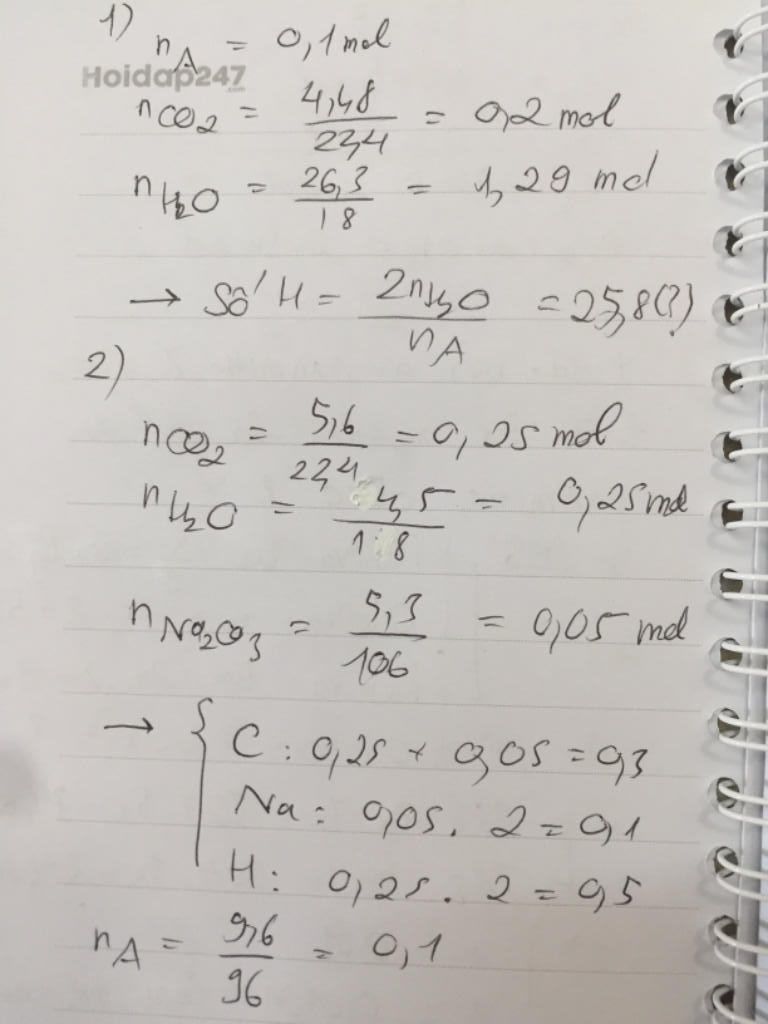 1)
nA = 0,1 mol
Hoidap247
.com
nCO2 = 4,48/22,4 = 0,2 mol
nH2O = 26,3/18 = 1,29 mol
→ Số H = 2nH2O/nA = 25,8(?)
2)
nCO2 = 5,6/22,4 = 0,25 mol
nH2O = 4,5/18 = 0,25 mol
nNa2CO3 = 5,3/106 = 0,05 mol
→ { C : 0,25 + 0,05 = 0,3
Na : 0,05 . 2 = 0,1
H : 0,25 . 2 = 0,5
nA = 9,6/96 = 0,1